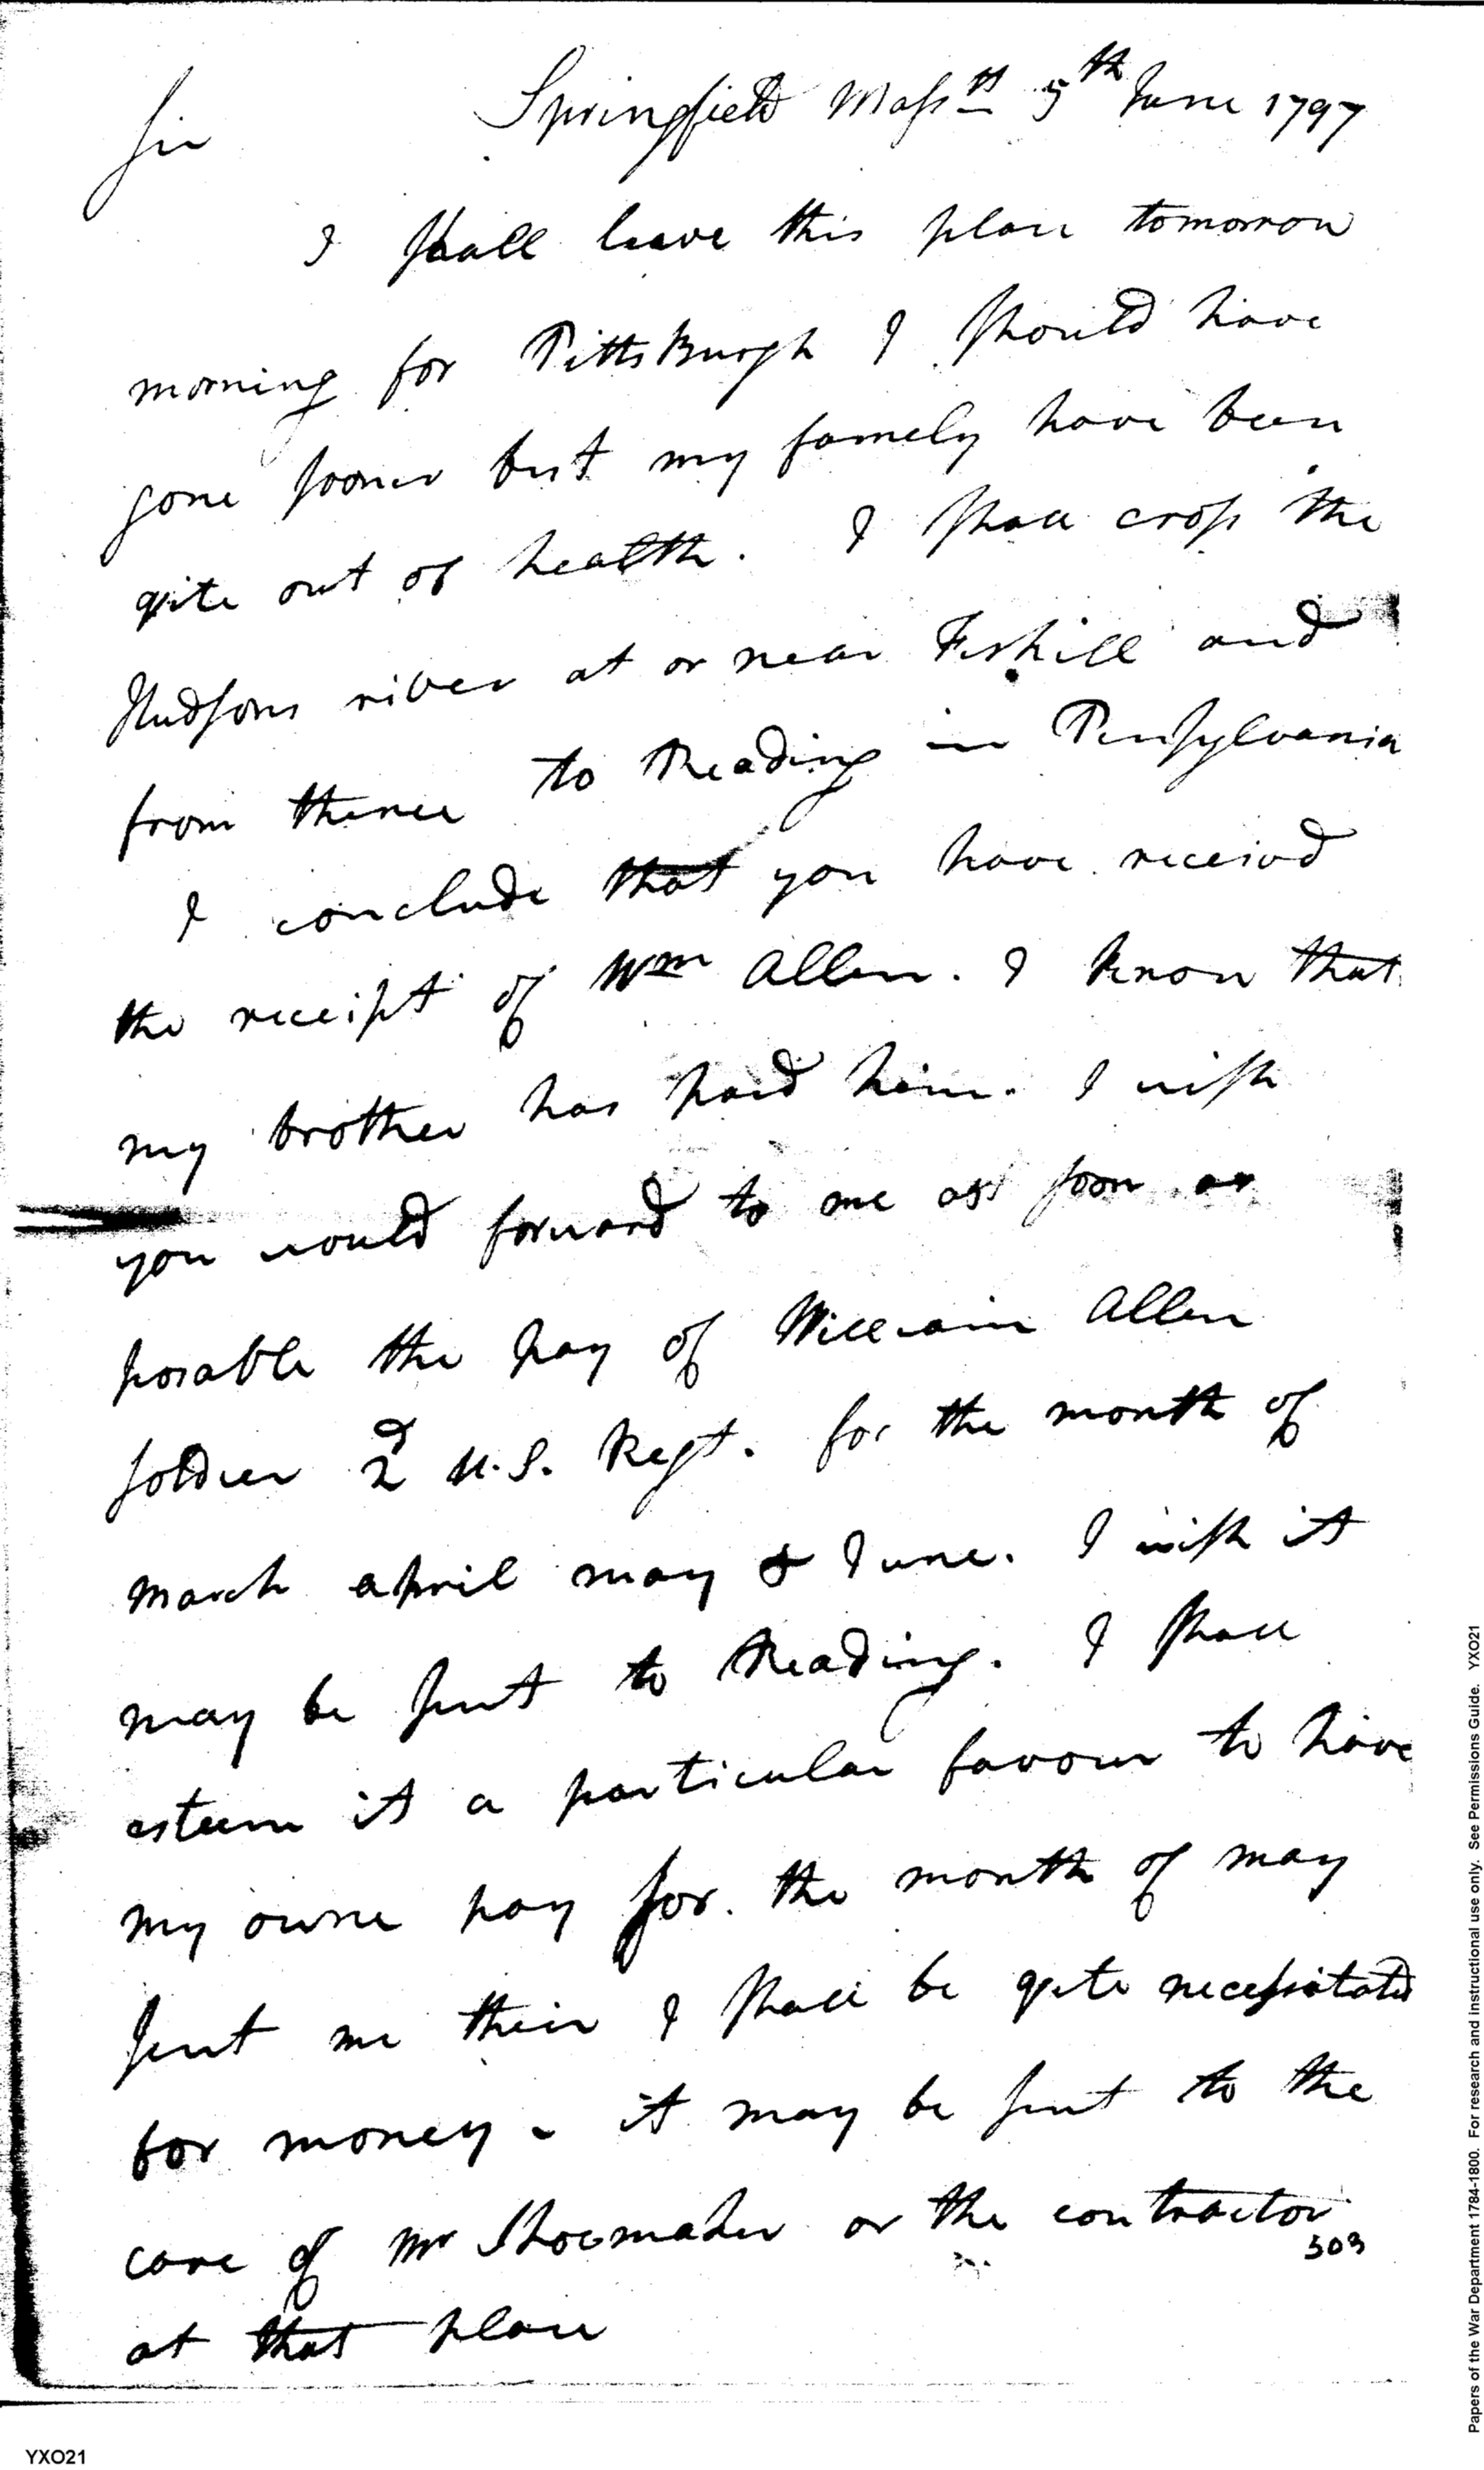 Springfield Massts 5th June 1797
Sir
I shall leave this place tomorrow
morning for PittsBurgh I should have
gone sooner but my famely have been
qite out of health. I shall cross the
Hudsons river at or near Fishill and
from thence to Reading in Pensylvania
I conclude that you have receivd
the receipt of Wm Allen. I know that
my brother has paid him. I wish
you would forward to me ass soon as
posable the pay of William Allen
soldier 2d U.S. Regt. for the month of
march april may & June. I wish it
may be sent to Reading. I shall
esteem it a particular favour to have
my owne pay for the month of may
sent me their I shall be qite necessitated
for money. it may be sent to the
care of Mr Shoemaker or the contractor
at that place
503
YXO21
Papers of the War Department 1784-1800. For research and instructional use only. See Permissions Guide. YXO21